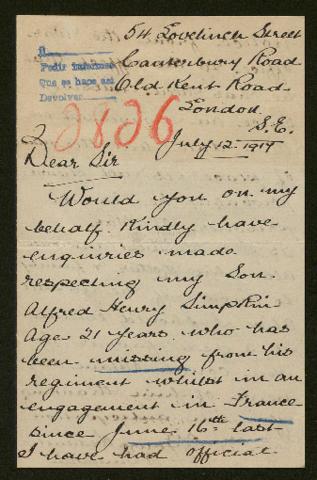 54 Lovelinch Street
Canterbury Road
Old Kent Road
London
S.E.
Pedir
Que se haga
Devolver
2126
July 12. 1917
Dear Sir
Would you on my
behalf. Kindly have
enquiries made
respecting my Son
Alfred Henry Simpkin
Age 21 years. who has
been missing from his
regiment whilst in an
engagement in France
since June 16th last
I have had official